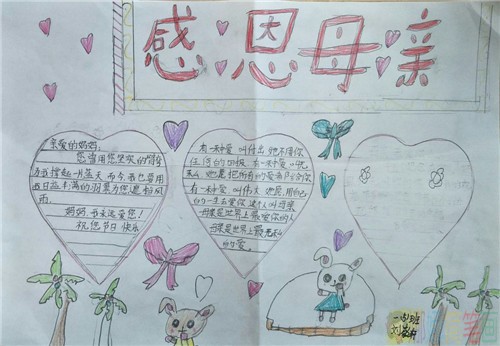 感恩母亲
亲爱的妈妈:
您曾用您坚实的臂膀
为我撑起一片蓝天 而今 我也要用
我日益丰满的羽翼为您遮挡风
雨。
妈妈,我永远爱您!
祝您节日快乐
有一种爱 叫付出 她不需你
任何的回报 有一种爱
她是把所有的爱
有一种爱 叫伟大 她是用自己
的一生去爱你 这个人叫母亲
母亲是世界上最爱你的人
母亲是世界上最无私
的爱。
班